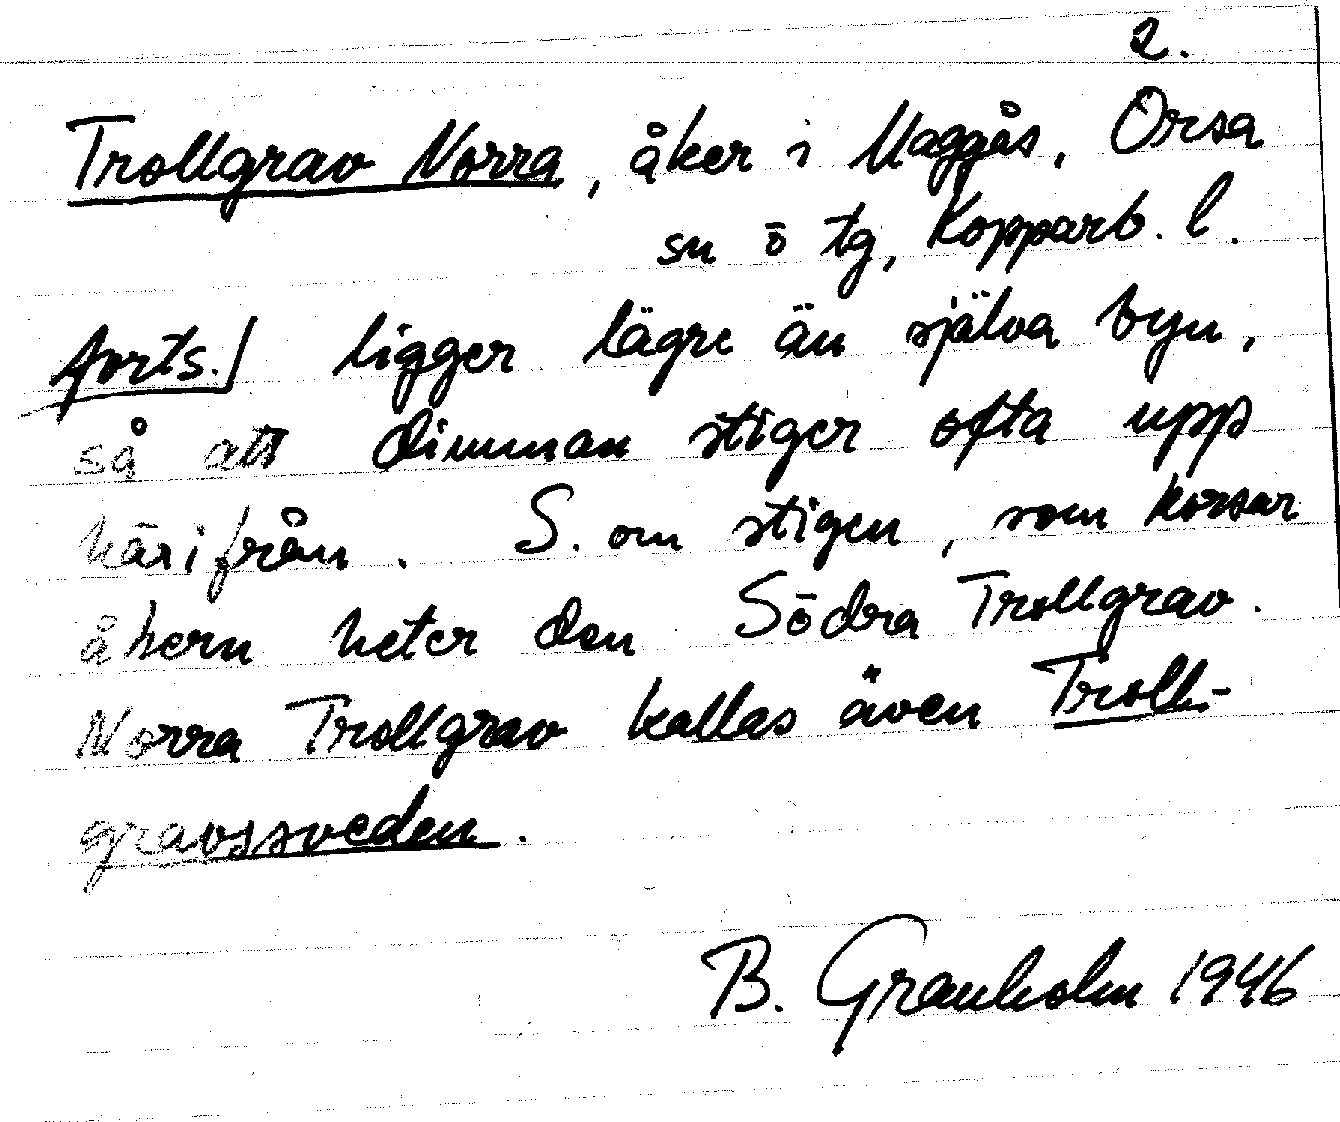 2.
Trollgrav Norra, åker i Maggås, Orsa
sn ö tg, Kopparb. l.
forts./ ligger lägre än själva byn,
så att dimman stiger ofta upp
härifrån. S. om stigen, som korsar
åkern heter den Södra Trollgrav.
Norra Trollgrav kallas även Troll-
gravssveden.
B. Granholm 1946